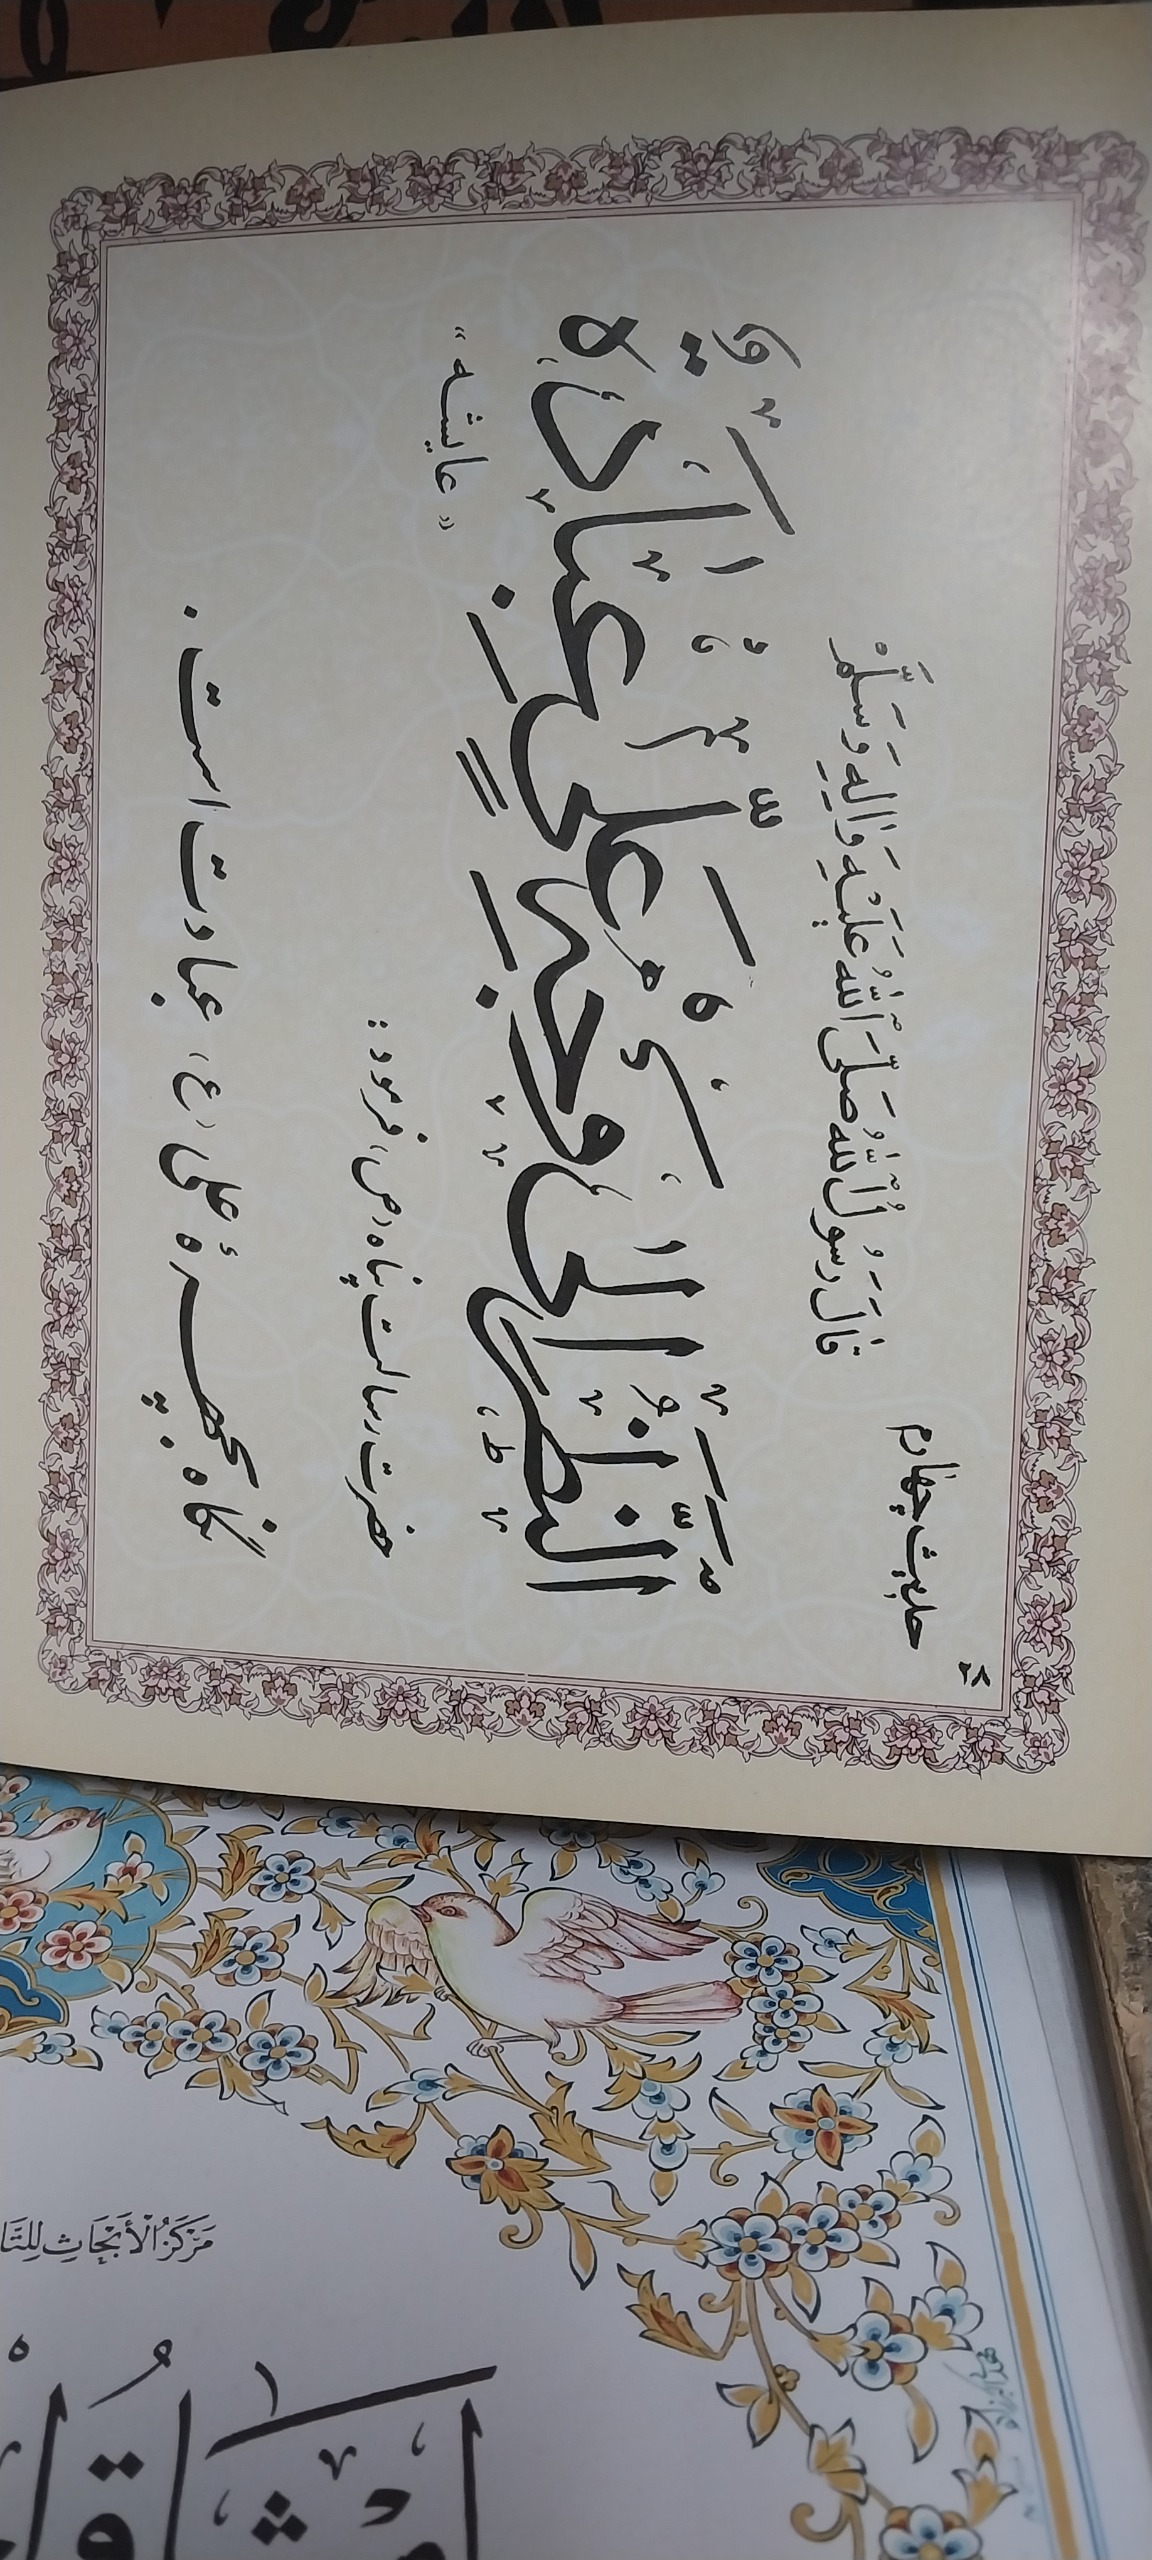 ۲۸
حدیث چهارم
قَالَ رَسُولُ اللّٰهِ صَلَّى اللّٰهُ عَلَيْهِ وَاٰلِهِ وَسَلَّمْ
اَلنَّظَرُ اِلىٰ وَجْهِ عَلِىٍّ عِبَادَةٌ
«عایشه»
حضرت رسالت پناه (ص) فرمود:
نگاه بچهرهٔ علی (ع) عبادت است.
مَرْكَزُ الْأَبْحَاثِ لِلتَّا